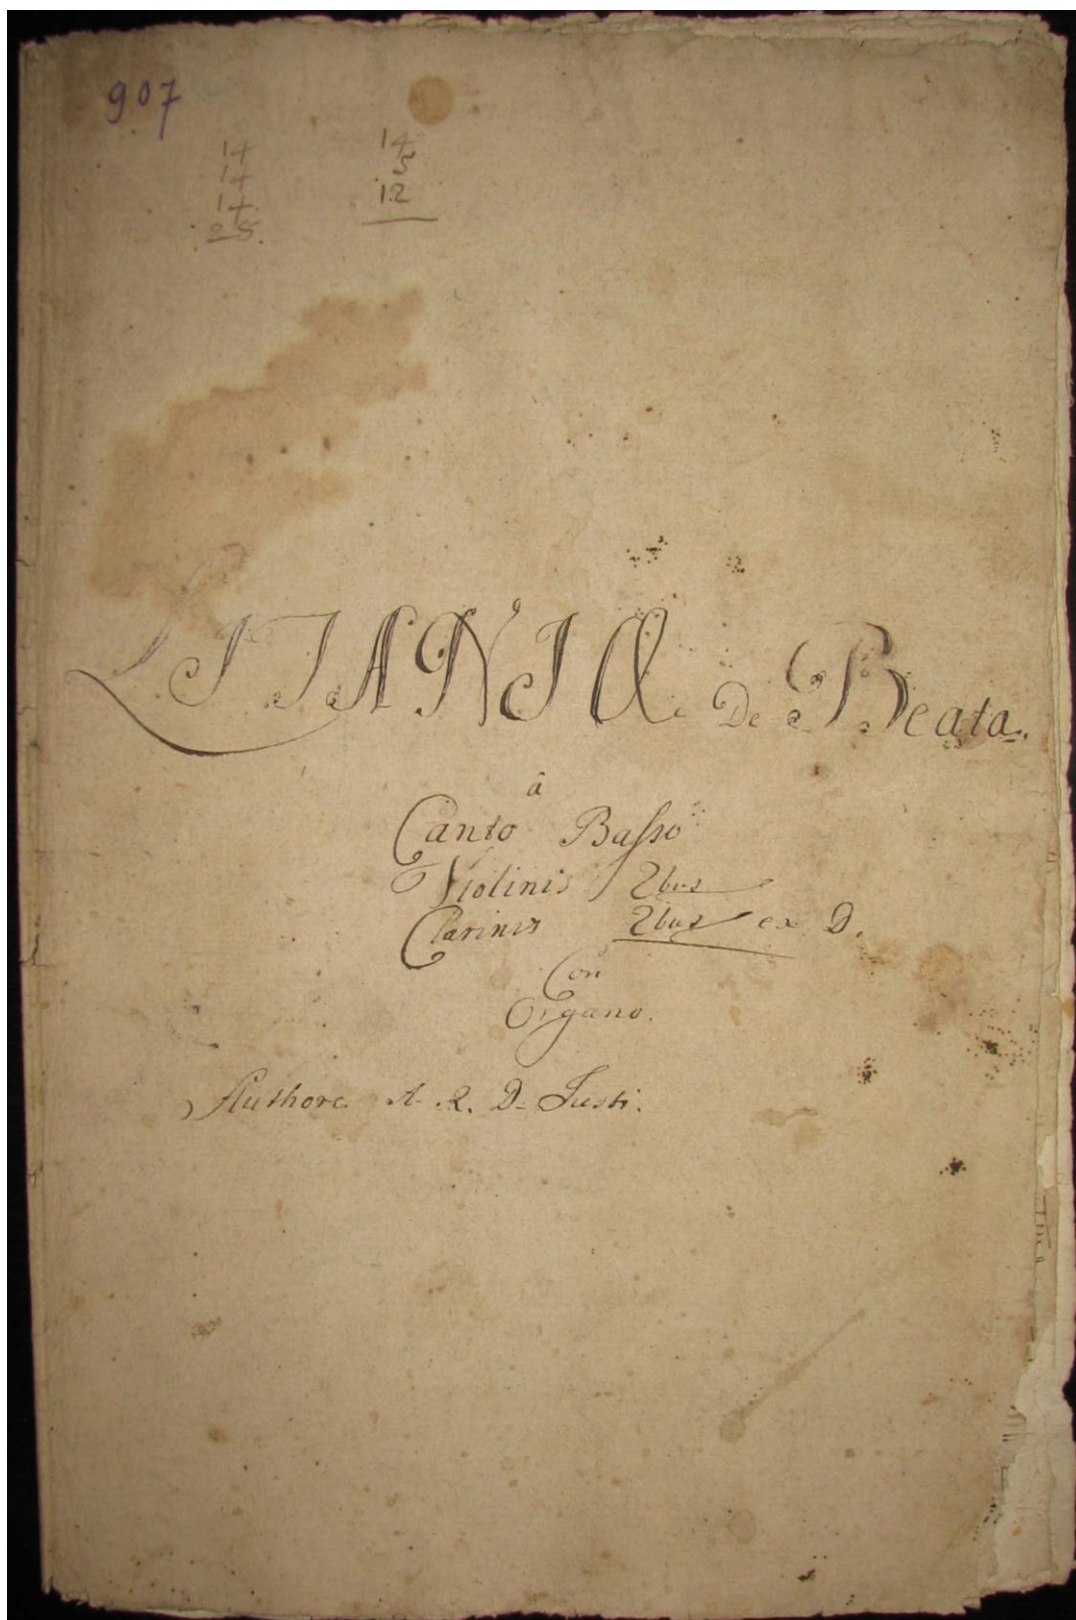 907
14
14
14
28
14
5
12
LITANIÆ De Beata.
â
Canto Basso
Violinis 2bus
Clarinis 2bus ex D.
Con
Organo.
Authore A. R. D. Iusti.